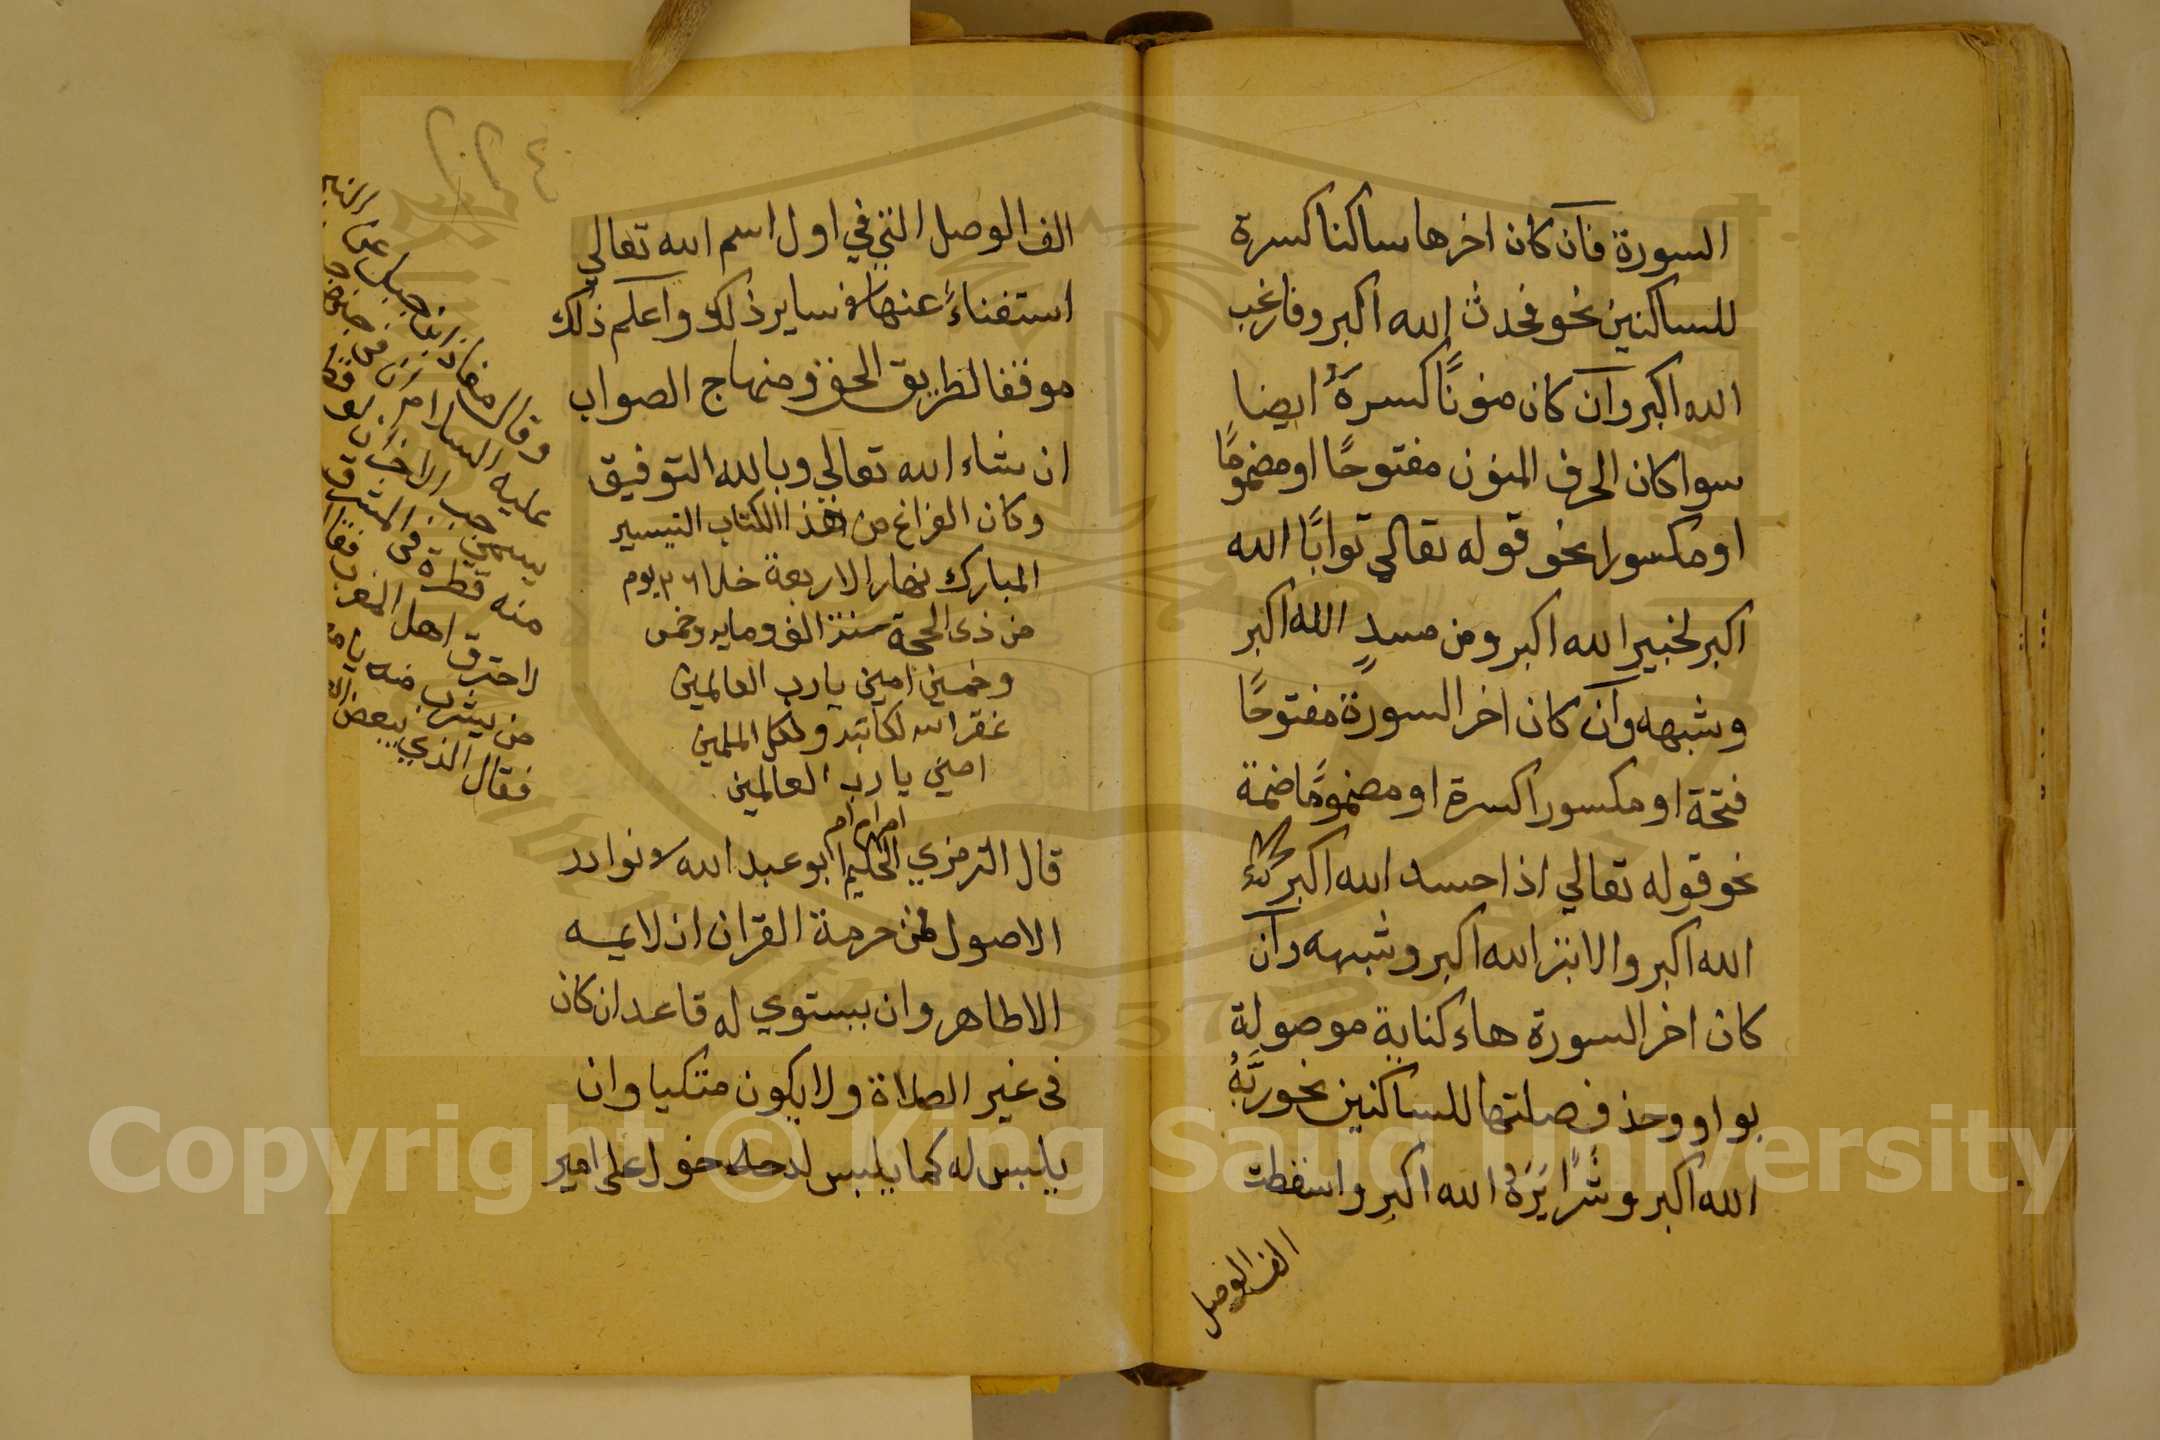 السورة فان كان اخرها ساكنا كسرة
للساكنين نحو فحدث الله اكبر وفارغب
الله اكبر وان كان منونًا كسرةً ايضا
سوا كان الحرف المنون مفتوحًا او مضمومًا
او مكسورا نحو قوله تعالي توابًا الله
اكبر لخبير الله اكبر ومن مسدٍ الله اكبر
وشبهه وان كان اخر السورة مفتوحًا
فتحة او مكسورا كسرة او مضمومًا ضمة
نحو قوله تعالي اذا حسد الله اكبر
الله اكبر والابتر الله اكبر وشبهه وان
كان اخر السورة هاء كناية موصولة
بواو وحذف صلتها للساكنين نحو ربَّهُ
الله اكبر وشرًا يَرَهُ الله اكبر واسقطت
الف الوصل
الف الوصل التي في اول اسم الله تعالي
استغناءً عنها في ساير ذلك واعلم ذلك
موفقا لطريق الحق ومنهاج الصواب
ان شاء الله تعالي وبالله التوفيق
وكان الفراغ من هذا الكتاب التيسير
المبارك نهار الاربعة خلا ٢٦ يوم
من ذي الحجة سنة الف ومايه وخمس
وخمسين امين يارب العالمين
غفر الله لكاتبه ولكل المسلمين
امين يارب العالمين
ام ام ام
قال الترمزي الحكيم ابو عبد الله في نوادر
الاصول فمن حرمة القران ان لا يمسه
الا طاهر وان يستوي له قاعدا ان كان
في غير الصلاة ولا يكون متكيا وان
يلبس له كما يلبس لدخول على امير
٢٤٠
وقال معاذ ابن جبل عن النبي
عليه السلام ان في
يسمي جب الاحزان لو
منه قطرة في المشرق
لاحترق اهل المغرب فقا
من يشرب منه يا
فقال الذي يبعض